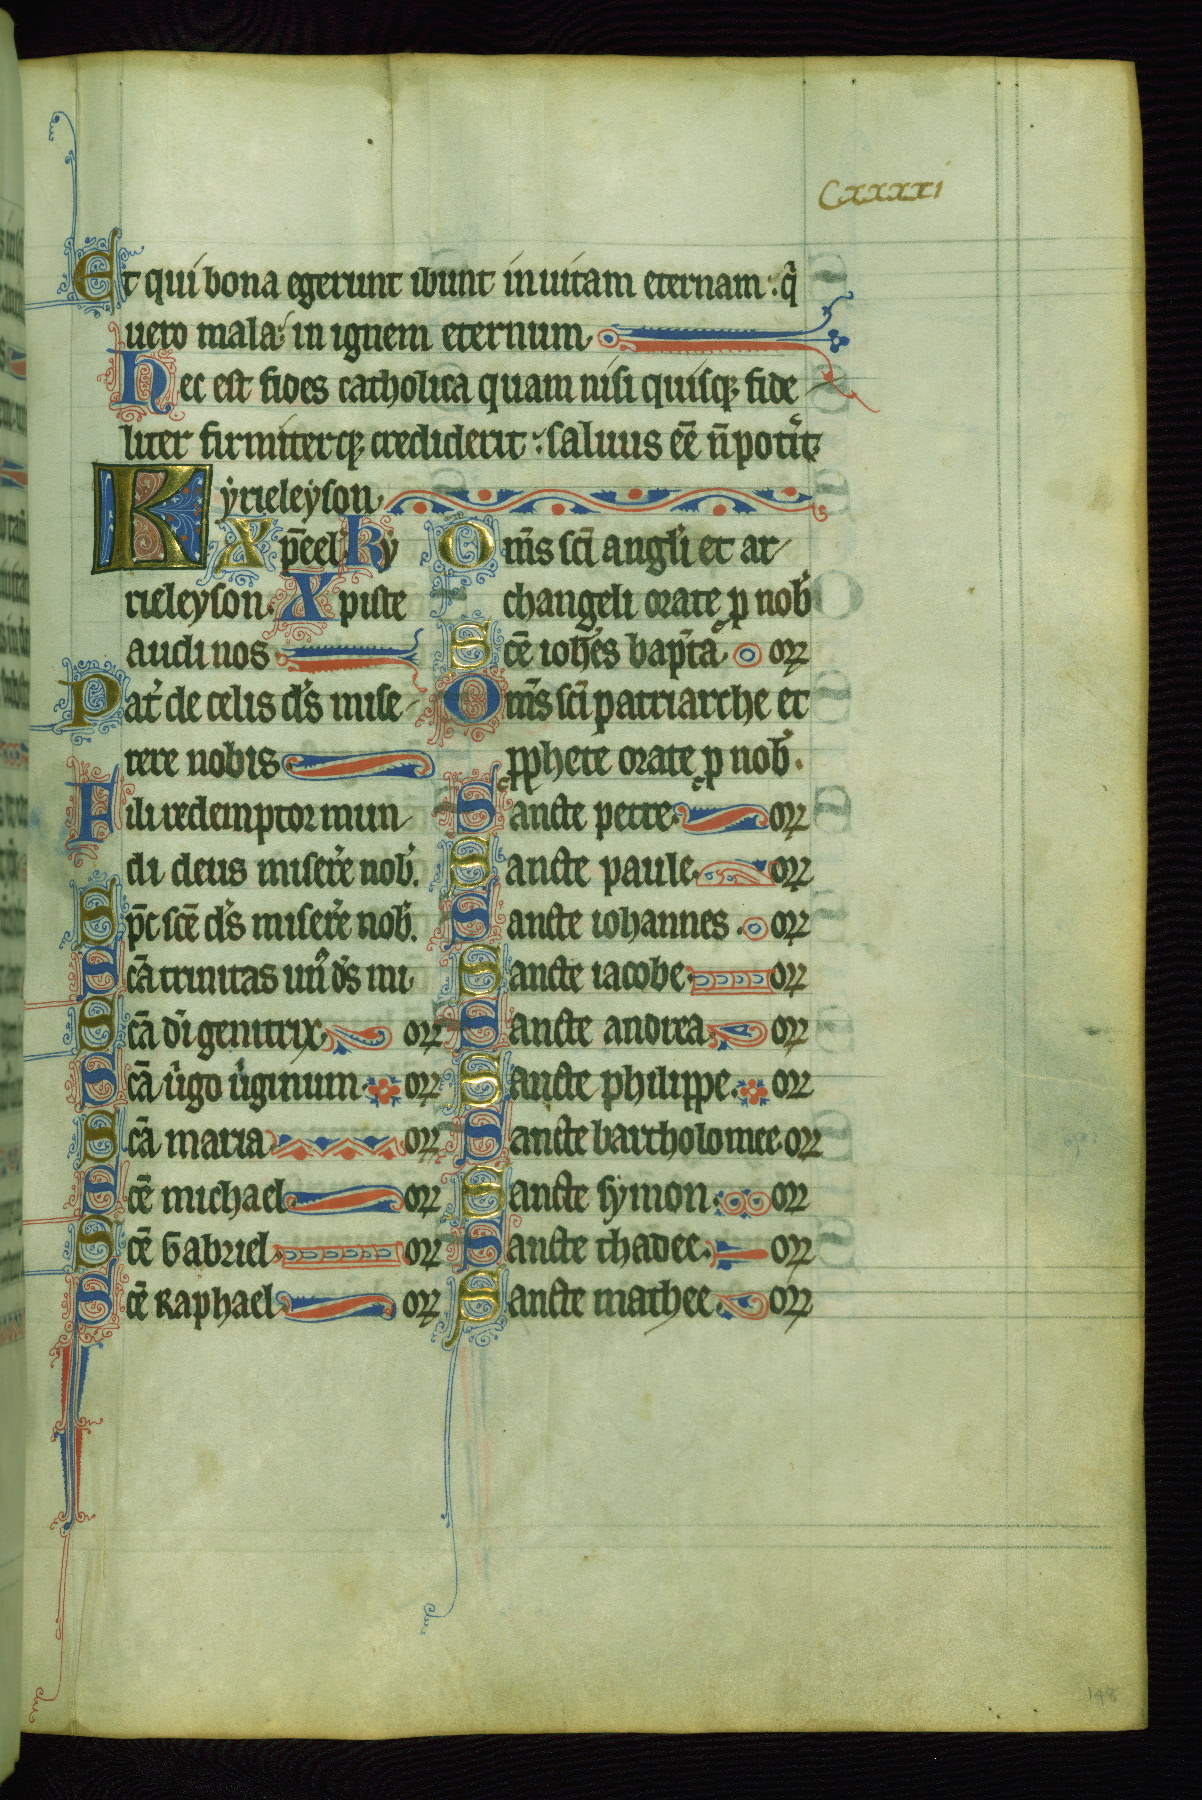 Cxxxxi
Et qui bona egerunt ibunt in uitam eternam: q̄
uero mala: in ignem eternum.
Hec est fides catholica quam nisi quisq; fide
liter firmiterq; crediderit: saluus eē n̄ pot͛it
Kyrieleyson.
Xp̄eel̓ Ky
rieleyson. Xpiste
audi nos
Pat͛ de celis d̓s mise
rere nobis
Fili redemptor mun
di deus miser͛e nob̓.
Sp̄c sc̄e d̓s miser͛e nob̓.
Sc̄a trinitas un̓ d̓s mi
Sc̄a di̓ genitrix orꝝ
Sc̄a u̓go u̓ginum. orꝝ
Sc̄a maria orꝝ
Sc̄e michael orꝝ
Sc̄e Gabriel orꝝ
Sc̄e Raphael orꝝ
Om̄s sc̄i angl̓i et ar
changeli orate ꝓ nob̓
Sc̄e ioh̓es bap̄ta orꝝ
Om̄s sc̄i patriarche et
ꝓphete orate ꝓ nob̓.
Sancte petre. orꝝ
Sancte paule. orꝝ
Sancte iohannes. orꝝ
Sancte iacobe. orꝝ
Sancte andrea orꝝ
Sancte philippe. orꝝ
Sancte bartholomee orꝝ
Sancte symon. orꝝ
Sancte thadee. orꝝ
Sancte mathee. orꝝ
148